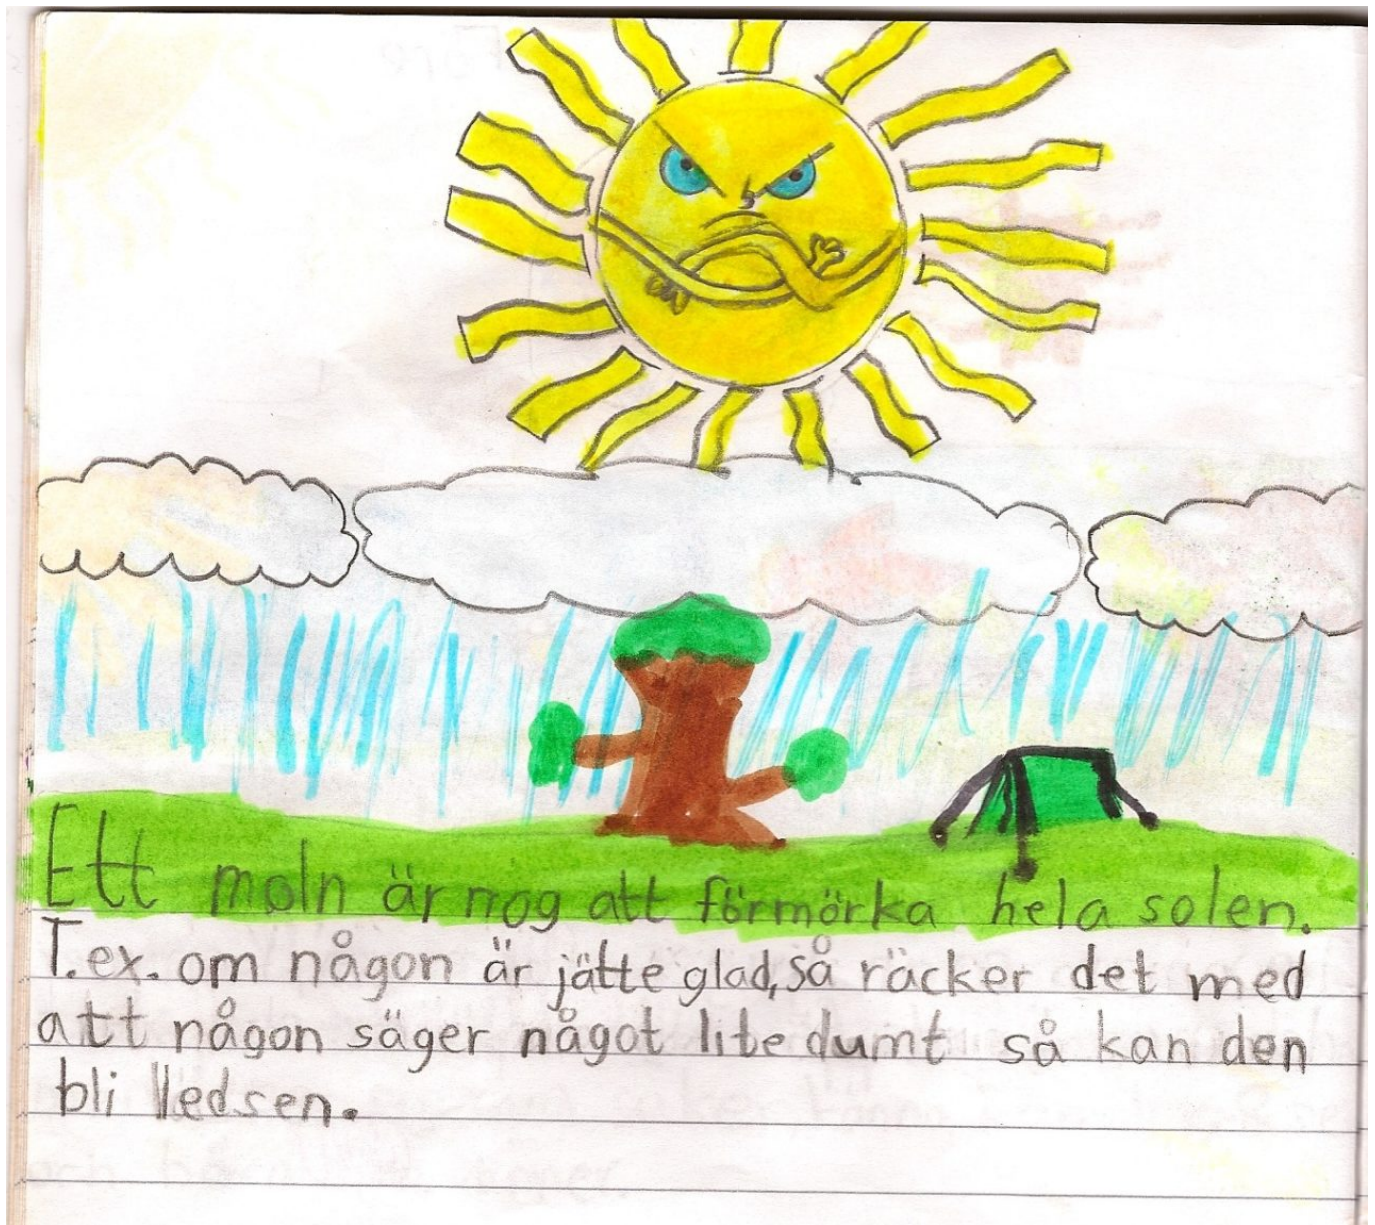 Ett moln är nog att förmörka hela solen.
T.ex. om någon är jätte glad, så räcker det med
att någon säger något lite dumt så kan den
bli lledsen.